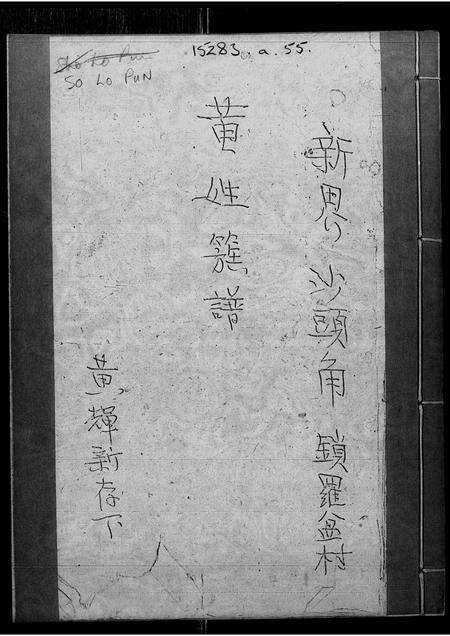 15283.a.55.
SO LO PUN
新界沙頭角鎖羅盆村
黃姓簇譜
黃輝新存下